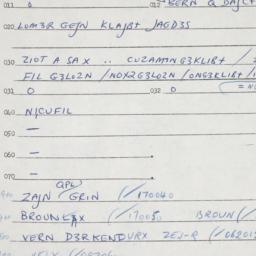 011 0 012 BERN Q DAJL
020 LOM3R GEJN KLAJB+ JAGD3S
030 ZIOT A SAX .. CUZAMNG3KLIB+ /
FIL G3LOZN /NOX2G3LOZN /ONG3KLIB+ /
031 0 032 0
040 NICUFIL
050 —
060 —
070 —
QPL
ZAJN GRIN (/170040
BROUNE (/170050 BROUN (/
VERN D3RKENDURX ZEJ-R (/062012